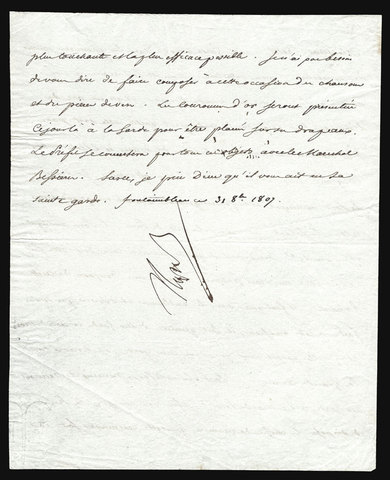 plus touchante et la plus efficace possible. Je n'ai pas besoin
de vous dire de faire composer à cette occasion des chansons
et des pièces de vers. Les couronnes d'or seront présentées
ce jour là à la Garde pour être placées sur ses drapeaux.
Le Préfet se concertera pour tous ces objets avec le Maréchal
Bessières. Sur ce, je prie Dieu qu'il vous ait en sa
sainte garde. fontainebleau ce 31 8bre 1807.
Nap